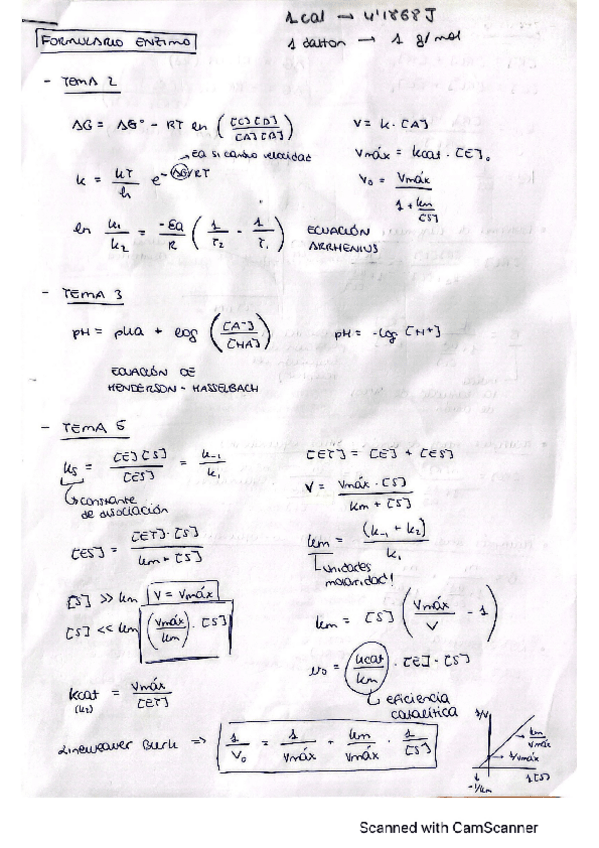 1 cal → 4'1868 J
FORMULARIO ENZIMO
1 dalton → 1 g/mol
- TEMA 2
ΔG = ΔG° - RT ln ([C][D]/[A][B])
V = k · [A]
→ Ea si cambio velocidad
Vmáx = kcat · [E]₀
k = kT/h e^-ΔG/RT
V₀ = Vmáx / (1 + km/[S])
ln k₁/k₂ = -Ea/R (1/T₂ - 1/T₁)
ECUACIÓN
ARRHENIUS
- TEMA 3
pH = pKa + log ([A-]/[HA])
pH = -log [H+]
ECUACIÓN DE
HENDERSON - HASSELBACH
- TEMA 5
ks = [E][S]/[ES] = k₋₁/k₁
[ET] = [E] + [ES]
↳ constante
de disociación
V = Vmáx · [S] / (km + [S])
[ES] = [ET] · [S] / (km + [S])
km = (k₋₁ + k₂)/k₁
↳ unidades
molaridad!
[S] >> km V = Vmáx
[S] << km (Vmáx/km) · [S]
km = [S] (Vmáx/V - 1)
v₀ = kcat/km · [E] · [S]
↳ eficiencia
catalítica
kcat = Vmáx/[ET]
(k₂)
Lineweaver Burk => 1/V₀ = 1/Vmáx + km/Vmáx · 1/[S]
1/V
→ km/Vmáx
→ 1/Vmáx
1/[S]
-1/km
Scanned with CamScanner